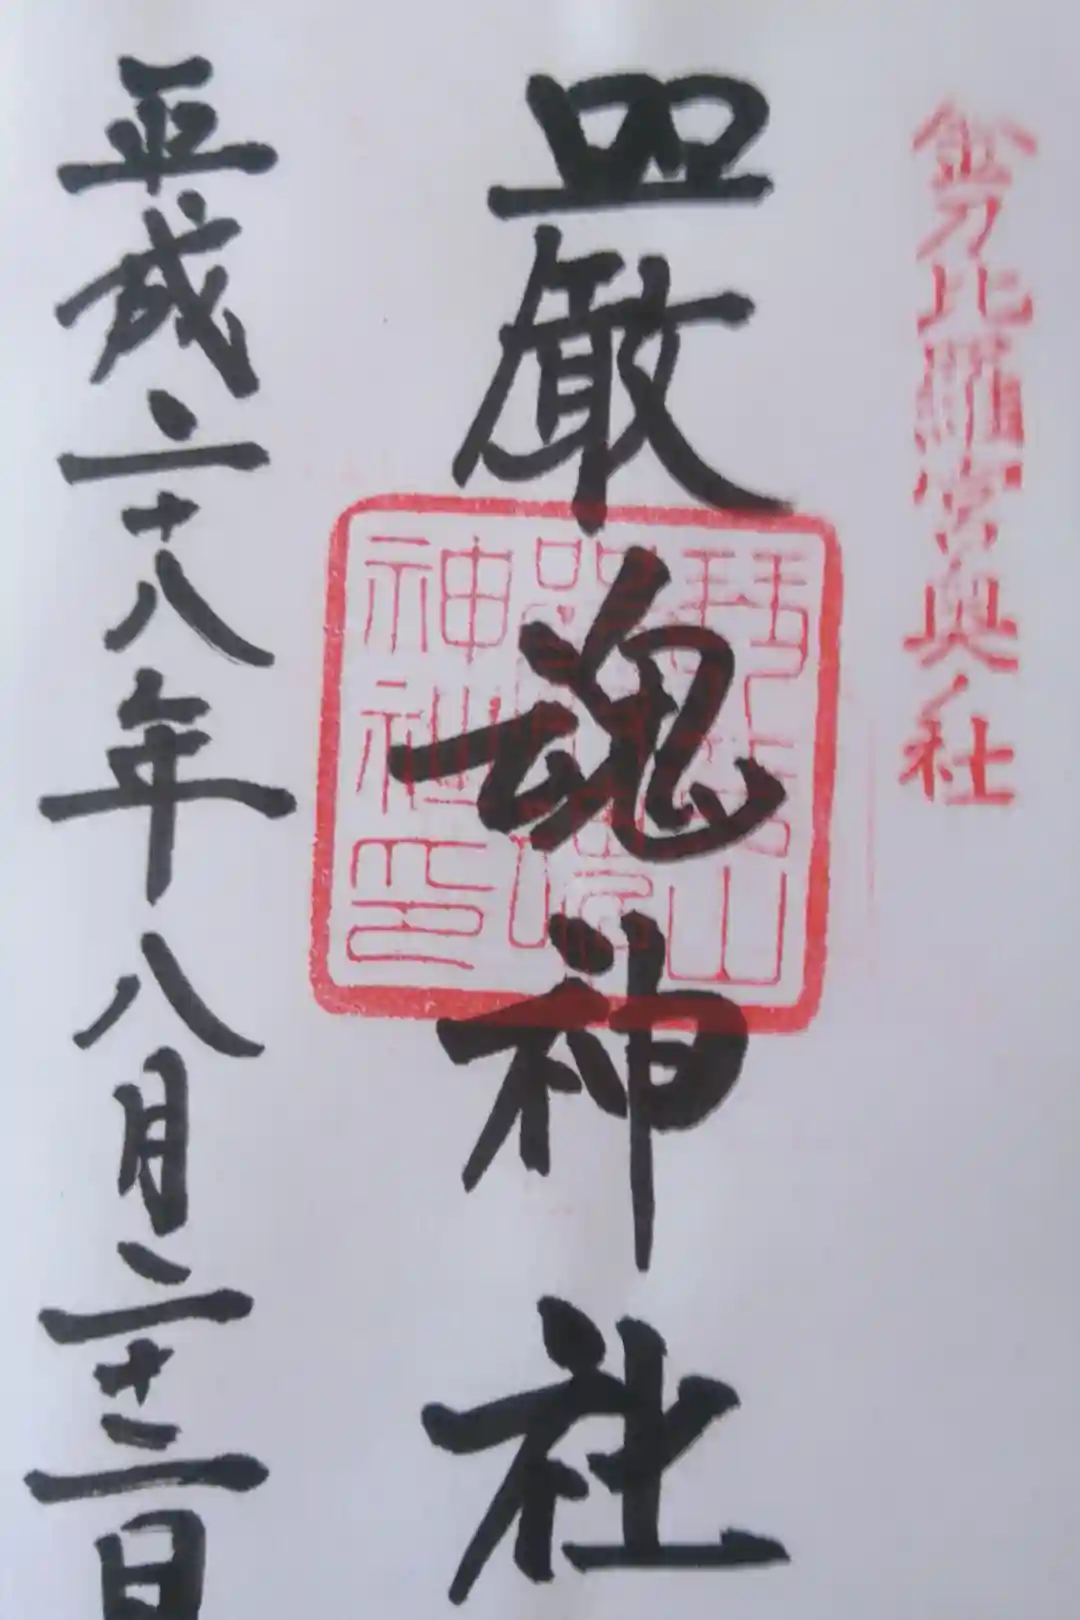 金刀比羅宮奥ノ社
嚴魂神社
神社印
平成二十八年八月二十三日